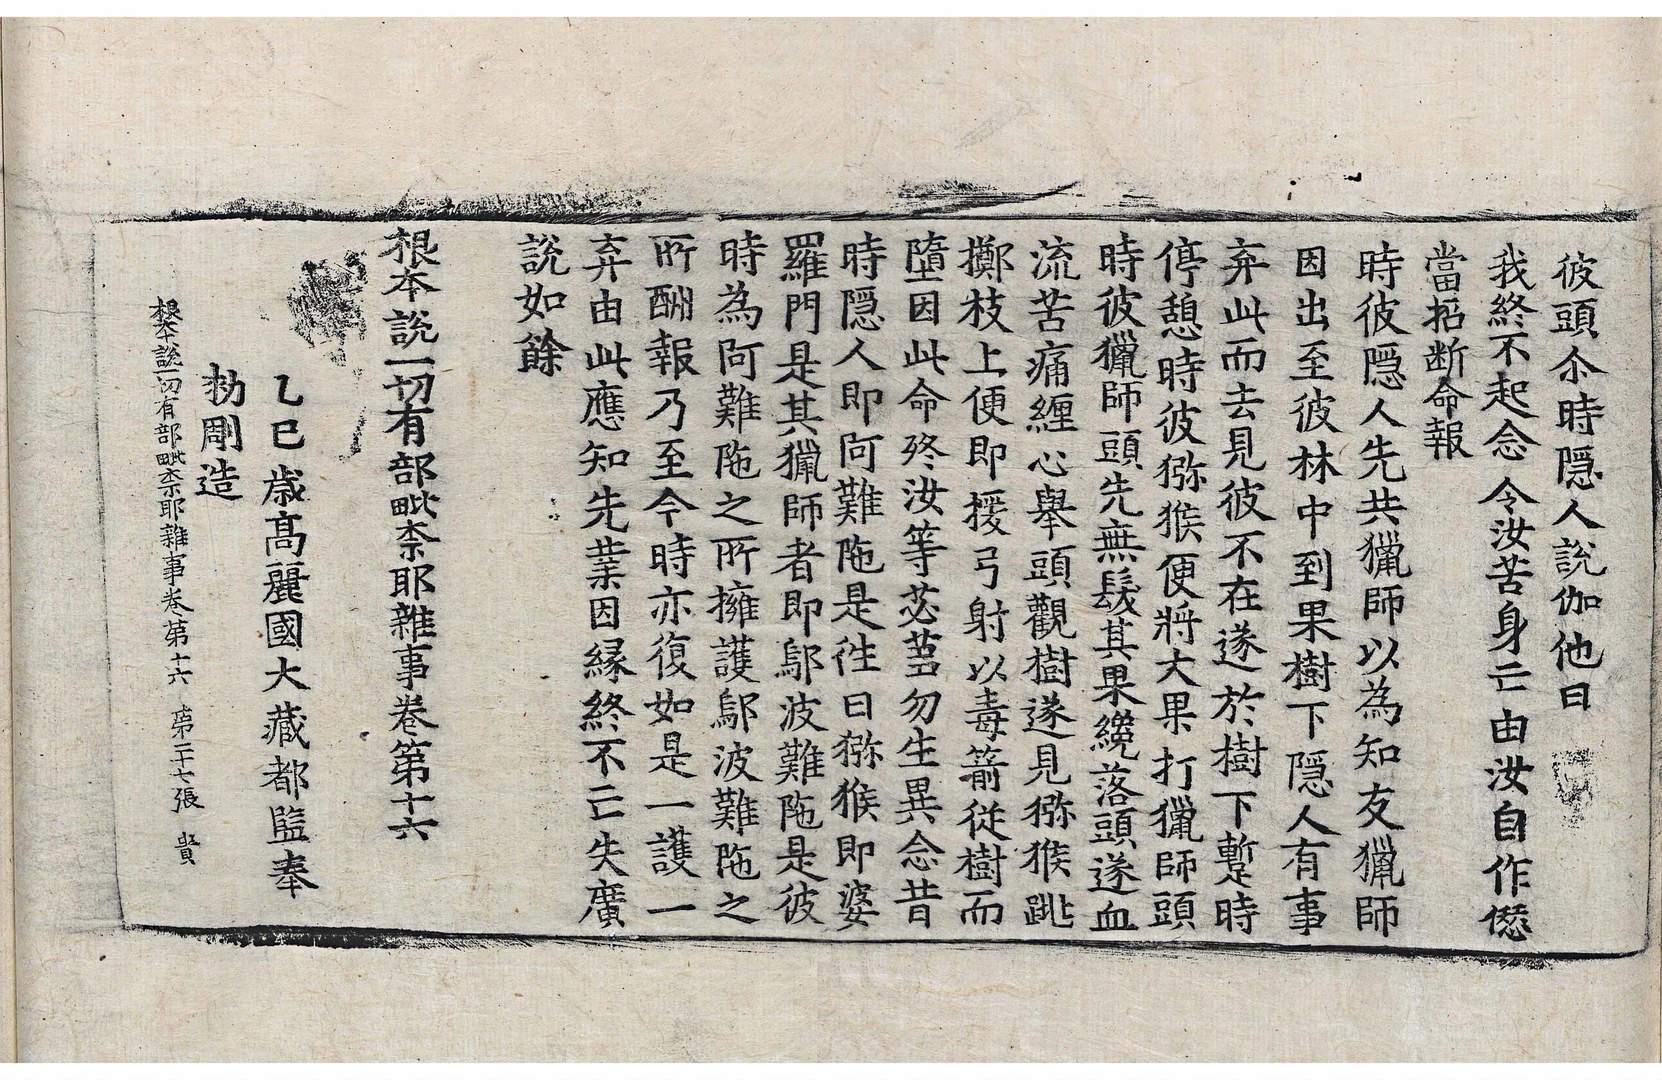 彼頭尒時隱人說伽他曰
我終不起念 令汝苦身亡 由汝自作𠎝
當招断命報
時彼隱人先共獵師以為知友獵師
因出至彼林中到果樹下隱人有事
弃此而去見彼不在遂於樹下蹔時
停憩時彼猕猴便將大果打獵師頭
時彼獵師頭先無髮其果纔落頭遂血
流苦痛纏心舉頭觀樹遂見猕猴跳
擲枝上便即援弓射以毒箭從樹而
墮因此命終汝等苾蒭勿生異念昔
時隱人即阿難陁是徃日猕猴即婆
羅門是其獵師者即鄔波難陁是彼
時為阿難陁之所擁護鄔波難陁之
所酬報乃至今時亦復如是一護一
弃由此應知先業因緣終不亡失廣
說如餘
根本說一切有部毗奈耶雜事卷第十六
乙巳歲高麗國大藏都監奉
勑彫造
根本說一切有部毗奈耶雜事卷第十六 第二十七張 貴